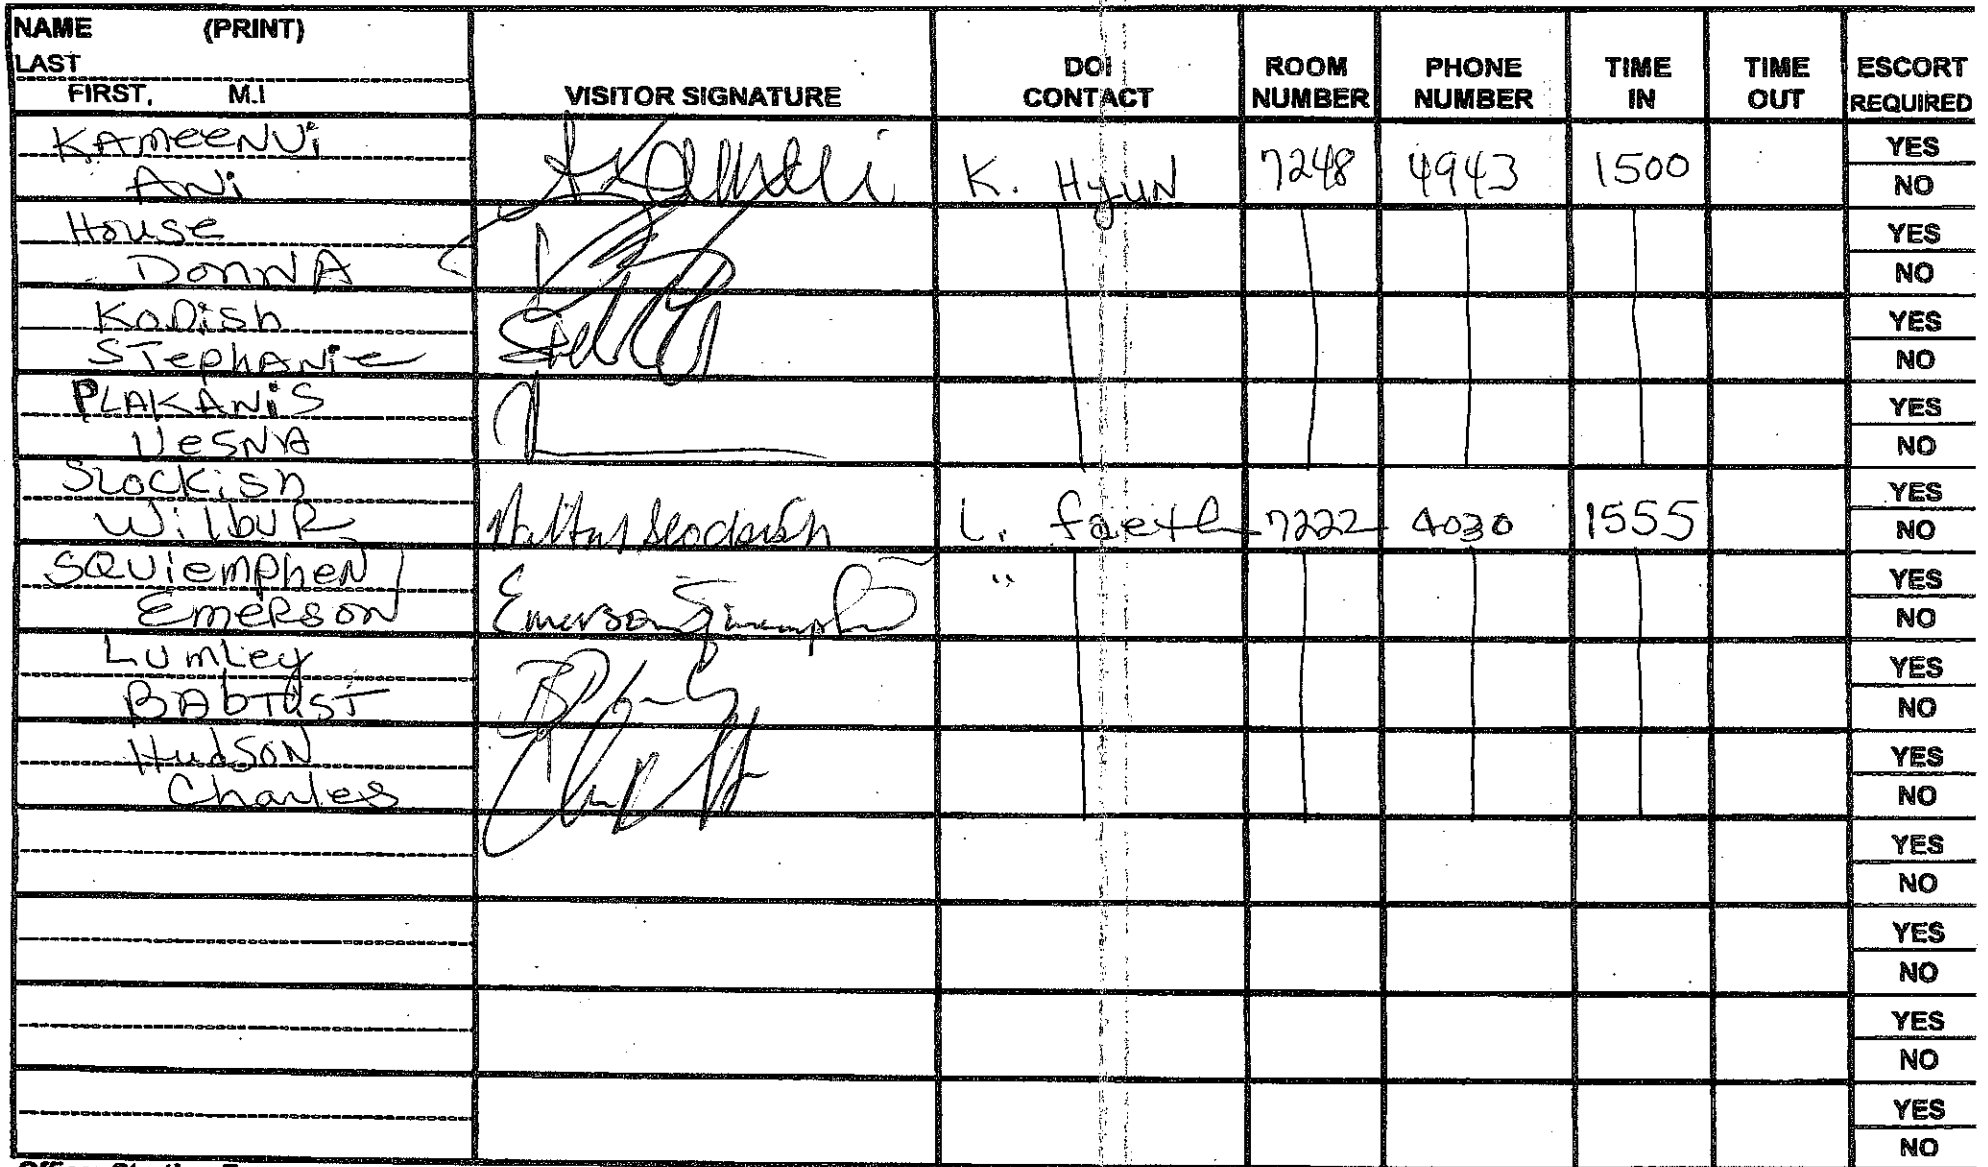 NAME (PRINT)
LAST
FIRST, M.I
VISITOR SIGNATURE
DOI CONTACT
ROOM NUMBER
PHONE NUMBER
TIME IN
TIME OUT
ESCORT REQUIRED
KAMeeNUi
ANi
K. HyuN 7248 4943 1500
YES
NO
House
DonnA
YES
NO
KoDish
STephANie
YES
NO
PLAKANiS
VeSNA
YES
NO
SLockish
WilbuR
L. faeth 7222 4030 1555
YES
NO
SQUiemphen
EmeRson
Emerson
"
YES
NO
Lumley
BAbTIST
YES
NO
HudSoN
Charles
YES
NO
YES
NO
YES
NO
YES
NO
YES
NO